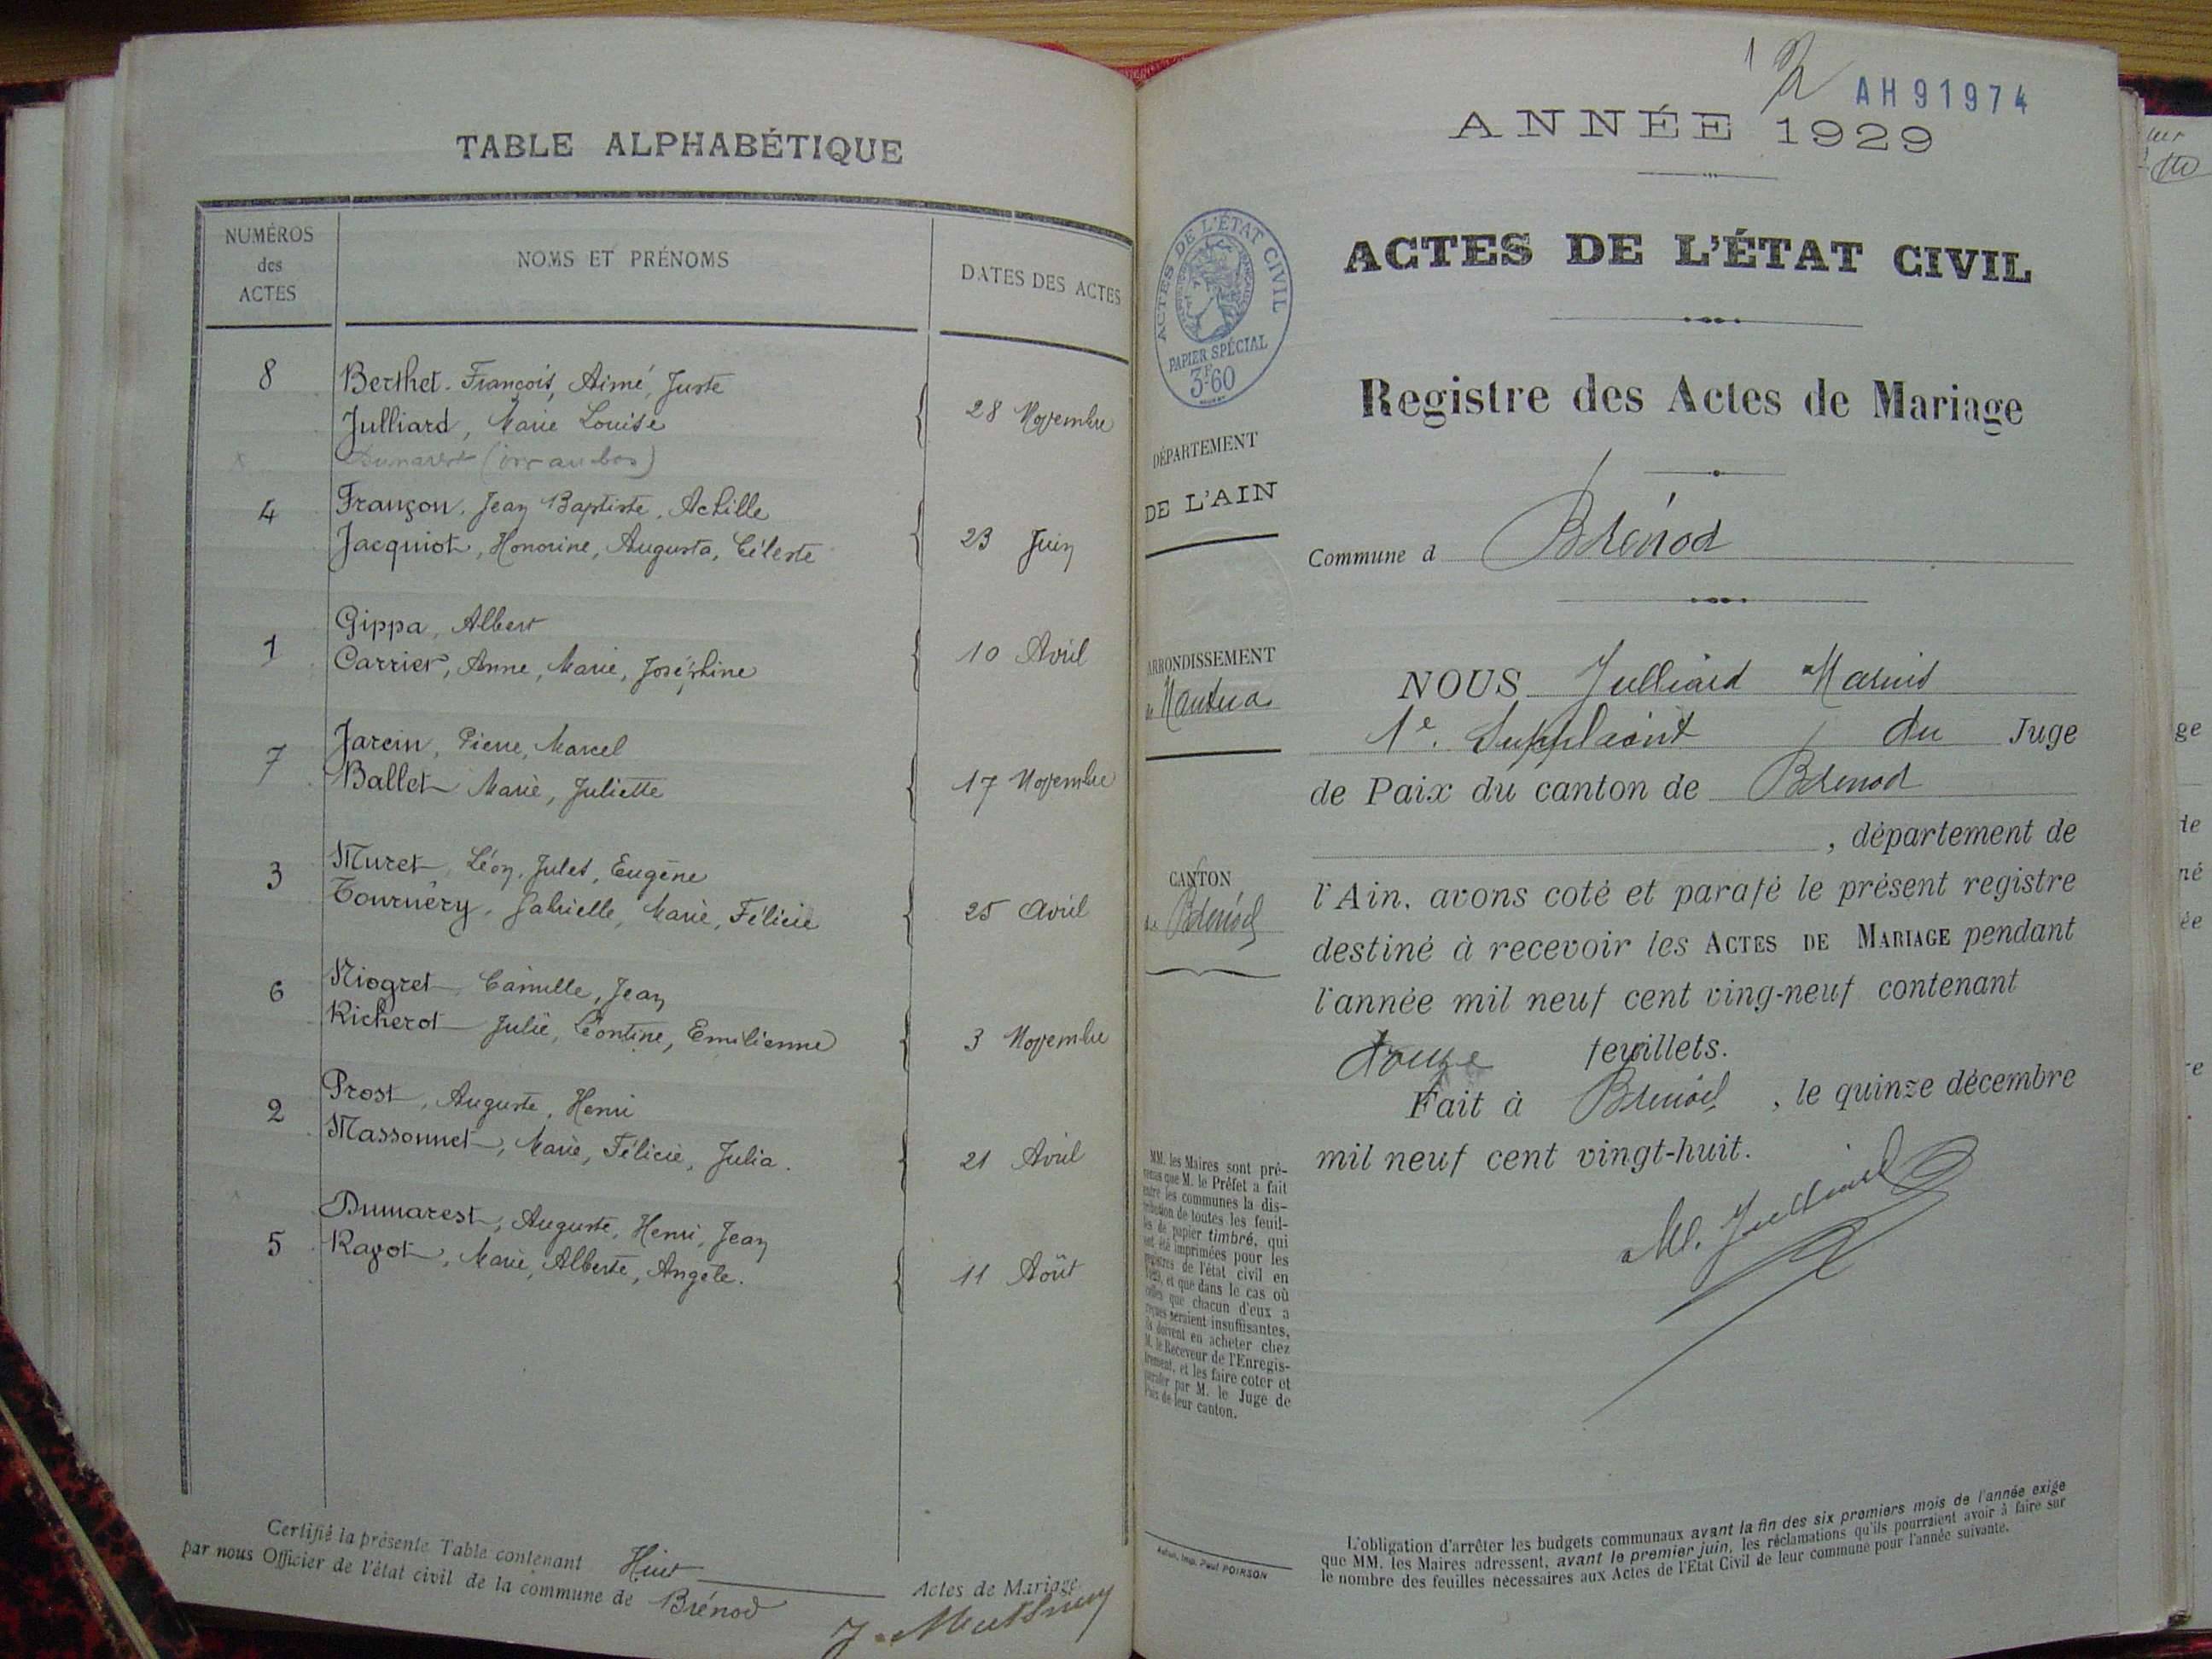 TABLE ALPHABÉTIQUE
NUMÉROS des ACTES
NOMS ET PRÉNOMS
DATES DES ACTES
8 Berthet. François, Aimé, Juste
Julliard, Marie Louise
28 Novembre
Dumarest (voir au bas)
4 Françon, Jean Baptiste, Achille
Jacquiot, Honorine, Augusta, Céleste
23 Juin
Gippa, Albert
1 Carrier, Anne, Marie, Joséphine
10 Avril
7 Jarcin, Pierre, Marcel
Ballet Marie, Juliette
17 Novembre
3 Muret, Léon, Jules, Eugène
Tournery, Gabrielle, Marie, Félicie
25 Avril
6 Niogret Camille, Jean
Richerot Julie, Léontine, Emilienne
3 Novembre
2 Prost, Auguste, Henri
Massonnet, Marie, Félicie, Julia.
21 Avril
Dumarest, Auguste, Henri, Jean
5 Ragot, Marie, Alberte, Angèle.
11 Août
Certifié la présente Table contenant Huit Actes de Mariage
par nous Officier de l'état civil de la commune de Brénod
1
AH91974
ANNÉE 1929
ACTES DE L'ÉTAT CIVIL
Registre des Actes de Mariage
ACTES DE L'ÉTAT CIVIL
PAPIER SPÉCIAL
3F60
DÉPARTEMENT
DE L'AIN
ARRONDISSEMENT
de Nantua
CANTON
de Brénod
Commune d Brénod
NOUS Julliard Marius
1e. Suppléant du Juge
de Paix du canton de Brenod
, département de
l'Ain, avons coté et parafé le présent registre
destiné à recevoir les ACTES DE MARIAGE pendant
l'année mil neuf cent ving-neuf contenant
douze feuillets.
Fait à Brénod, le quinze décembre
mil neuf cent vingt-huit.
M. Julliard
MM. les Maires sont pré-
venus que M. le Préfet a fait
entre les communes la dis-
tribution de toutes les feuil-
les de papier timbré, qui
ont été imprimées pour les
registres de l'état civil en
1929, et que dans le cas où
celles que chacun d'eux a
reçues seraient insuffisantes,
ils doivent en acheter chez
M. le Receveur de l'Enregis-
trement, et les faire coter et
parafer par M. le Juge de
Paix de leur canton.
Imp. Paul POIRSON
L'obligation d'arrêter les budgets communaux avant la fin des six premiers mois de l'année exige
que MM. les Maires adressent, avant le premier juin, les réclamations qu'ils pourraient avoir à faire sur
le nombre des feuilles nécessaires aux Actes de l'Etat Civil de leur commune pour l'année suivante.